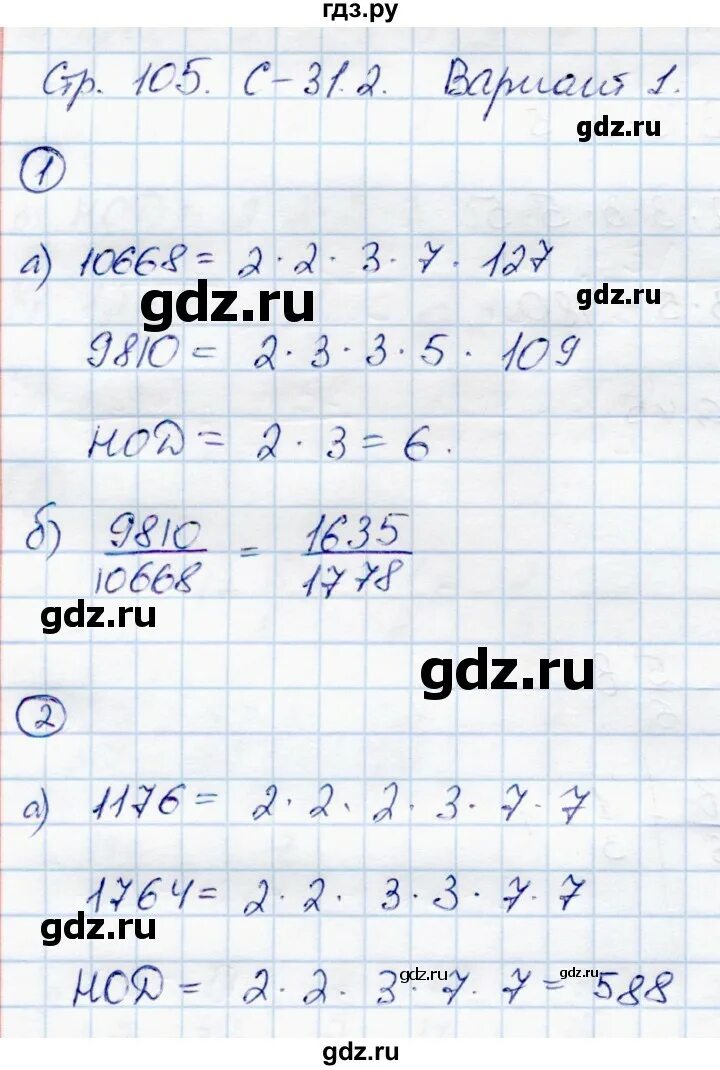 гдз.ру
Стр. 105. С-31.2. Вариант 1.
gdz.ru
1
а) 10668 = 2 · 2 · 3 · 7 · 127
gdz.ru
gdz.ru
9810 = 2 · 3 · 3 · 5 · 109
НОД = 2 · 3 = 6.
б) 9810/10668 = 1635/1778
gdz.ru
gdz.ru
2
а) 1176 = 2 · 2 · 2 · 3 · 7 · 7
1764 = 2 · 2 · 3 · 3 · 7 · 7
gdz.ru
НОД = 2 · 2 · 3 · 7 · 7 = 588
gdz.ru
gdz.ru
gdz.ru